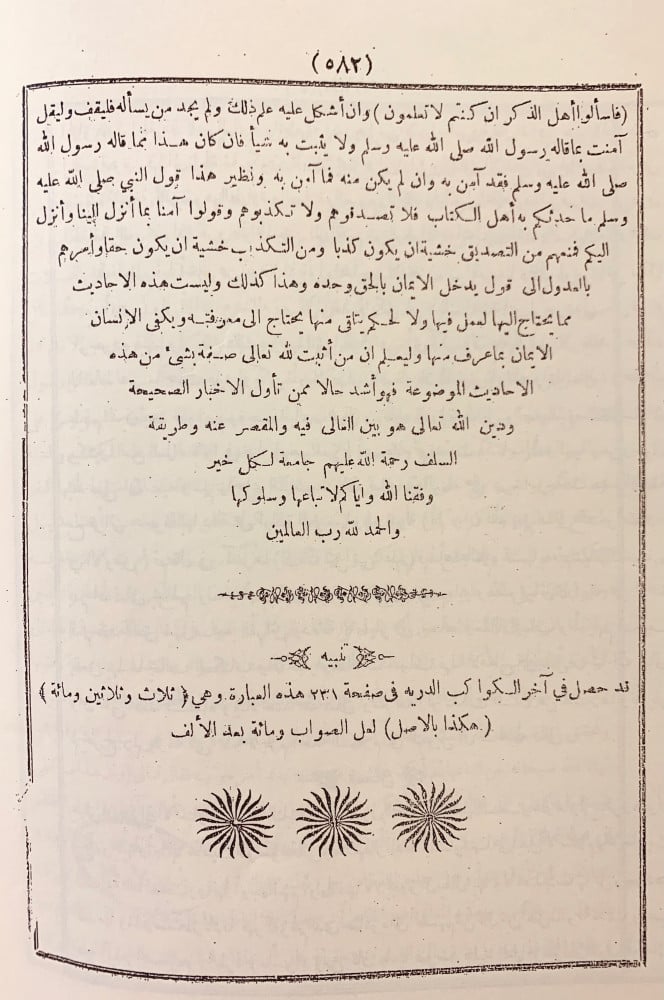 (٥٨٢)
(فاسألوا أهل الذكر ان كنتم لا تعلمون) وان أشكل عليه علم ذلك ولم يجد من يسأله فليقف وليقل
آمنت بما قاله رسول الله صلى الله عليه وسلم ولا يثبت به شيأ فان كان هذا مما قاله رسول الله
صلى الله عليه وسلم فقد آمن به وان لم يكن منه فما آمن به ونظير هذا قول النبي صلى الله عليه
وسلم ما حدثكم به أهل الكتاب فلا تصدقوهم ولا تكذبوهم وقولوا آمنا بما أنزل الينا وأنزل
اليكم فمنعهم من التصديق خشية ان يكون كذبا ومن التكذيب خشية ان يكون حقا وأمرهم
بالعدول الى قول يدخل الايمان بالحق وحده وهذا كذلك وليست هذه الاحاديث
مما يحتاج اليها لعمل فيها ولا لحكم يتاقى منها يحتاج الى معرفته ويكفى الانسان
الايمان بما عرف منها وليعلم ان من أثبت لله تعالى صفة بشئ من هذه
الاحاديث الموضوعة فهو أشد حالا ممن تأول الاخبار الصحيحة
ودين الله تعالى هو بين الغالى فيه والمقصر عنه وطريقة
السلف رحمة الله عليهم جامعة لكل خير
وفقنا الله واياكم لاتباعها وسلوكها
والحمد لله رب العالمين
تنبيه
قد حصل في آخر الكواكب الدريه فى صفحة ٢٣١ هذه العبارة وهي (ثلاث وثلاثين ومائة)
(هكذا بالاصل) لعل الصواب ومائة بعد الألف